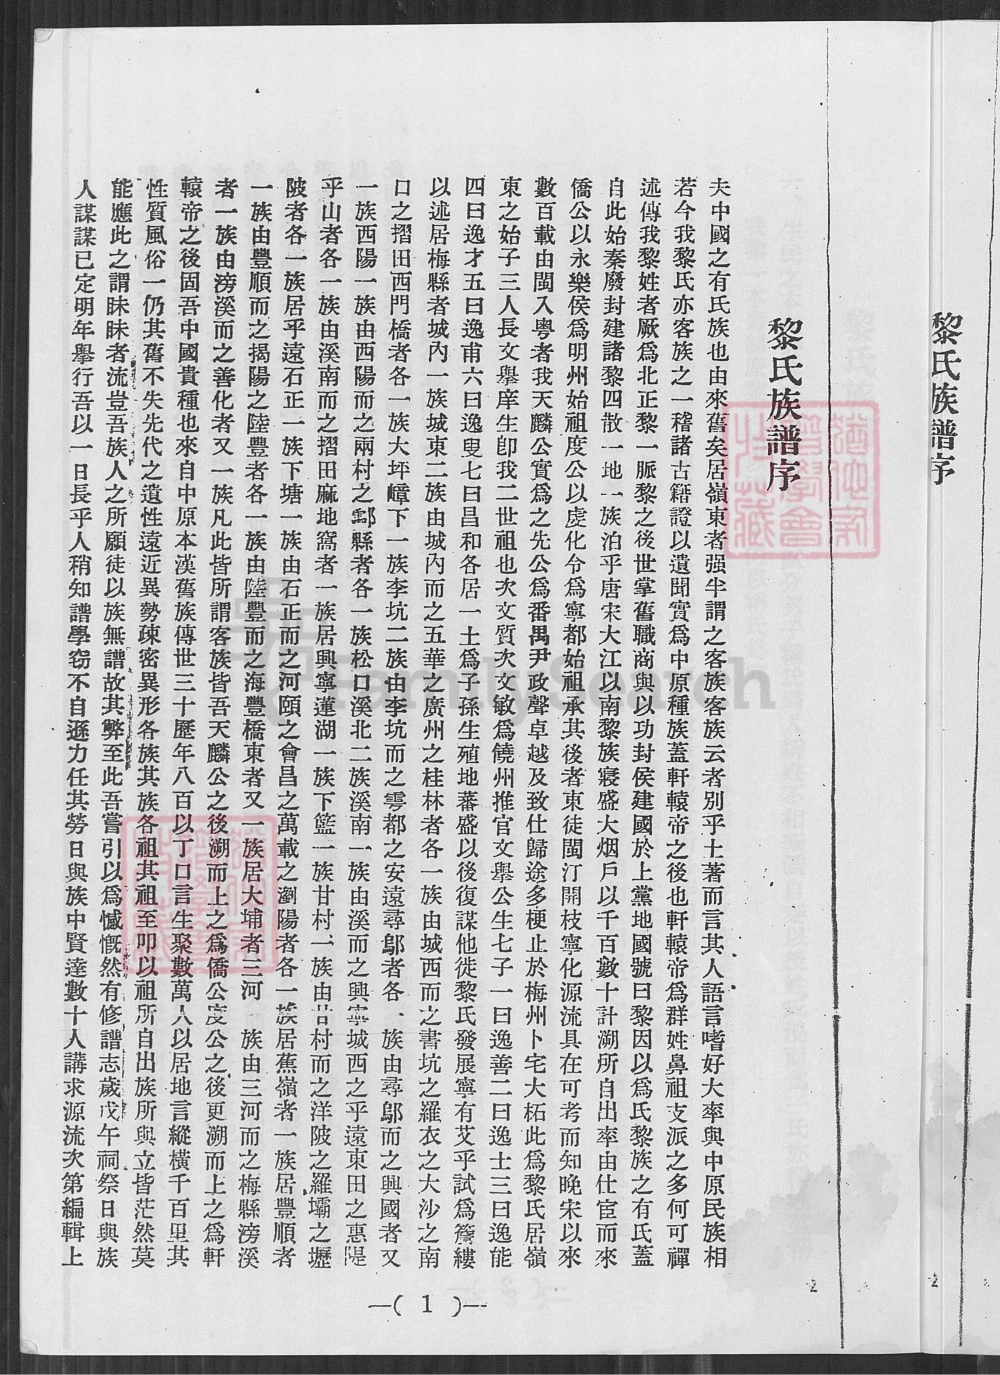 黎氏族譜序
黎氏族譜序
夫中國之有氏族也由來舊矣居嶺東者强半謂之客族客族云者別乎土著而言其人語言嗜好大率與中原民族相
若今我黎氏亦客族之一稽諸古籍證以遺聞實爲中原種族蓋軒轅帝之後也軒轅帝爲群姓鼻祖支派之多何可禪
述傳我黎姓者厥爲北正黎一脈黎之後世掌舊職商與以功封侯建國於上黨地國號曰黎因以爲氏黎族之有氏蓋
自此始秦廢封建諸黎四散一地一族泊乎唐宋大江以南黎族寖盛大烟戶以千百數十計溯所自出率由仕宦而來
僑公以永樂侯爲明州始祖度公以虔化令爲寧都始祖承其後者東徒閩汀開枝寧化源流具在可考而知晚宋以來
數百載由閩入粵者我天麟公實爲之先公爲番禺尹政聲卓越及致仕歸途多梗止於梅州卜宅大柘此爲黎氏居嶺
東之始子三人長文舉庠生卽我二世祖也次文質次文敏爲饒州推官文舉公生七子一曰逸善二曰逸士三曰逸能
四曰逸才五曰逸甫六曰逸叟七曰昌和各居一土爲子孫生殖地蕃盛以後復謀他徙黎氏發展寧有艾乎試爲覶縷
以述居梅縣者城內一族城東二族由城內而之五華之廣州之桂林者各一族由城西而之書坑之羅衣之大沙之南
口之摺田西門橋者各一族大坪嶂下一族李坑二族由李坑而之雩都之安遠尋鄔者各一族由尋鄔而之興國者又
一族西陽一族由西陽而之兩村之鄅縣者各一族松口溪北二族溪南一族由溪而之興寧城西之乎遠東田之惠隄
乎山者各一族由溪南而之摺田麻地窩者一族居興寧蓮湖一族下籃一族甘村一族由甘村而之洋陂之羅壩之壢
陂者各一族居乎遠石正一族下塘一族由石正而之河頤之會昌之萬載之瀏陽者各一族居蕉嶺者一族居豐順者
一族由豐順而之揭陽之陸豐者各一族由陸豐而之海豐橋東者又一族居大埔者三河 族由三河而之梅縣滂溪
者一族由滂溪而之善化者又一族凡此皆所謂客族皆吾天麟公之後溯而上之爲僑公度公之後更溯而上之爲軒
轅帝之後固吾中國貴種也來自中原本漢舊族傳世三十歷年八百以丁口言生聚數萬人以居地言縱橫千百里其
性質風俗一仍其舊不失先代之遺性遠近異勢疎密異形各族其族各祖其祖至叩以祖所自出族所與立皆茫然莫
能應此之謂昧昧者流豈吾族人之所願徒以族無譜故其弊至此吾嘗引以爲憾慨然有修譜志歲戊午祠祭日與族
人謀謀已定明年舉行吾以一日長乎人稍知譜學窃不自遜力任其勞日與族中賢達數十人講求源流次第編輯上
—( 1 )—
2
2
FamilySearch